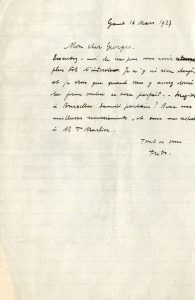 Gand 16 Mars 1927
Mon cher Georges.
Excusez-moi de ne pas vous avoir
plus tôt l'interview. Je n'y ai rien changé,
et je crois que quand vous y aurez donné
la forme voulue ce sera parfait. –
à Bruxelles Samedi prochain ? Avec mes
meilleurs sentiments, et vous me
à M. Marlier.
Tout à vous
Frits.